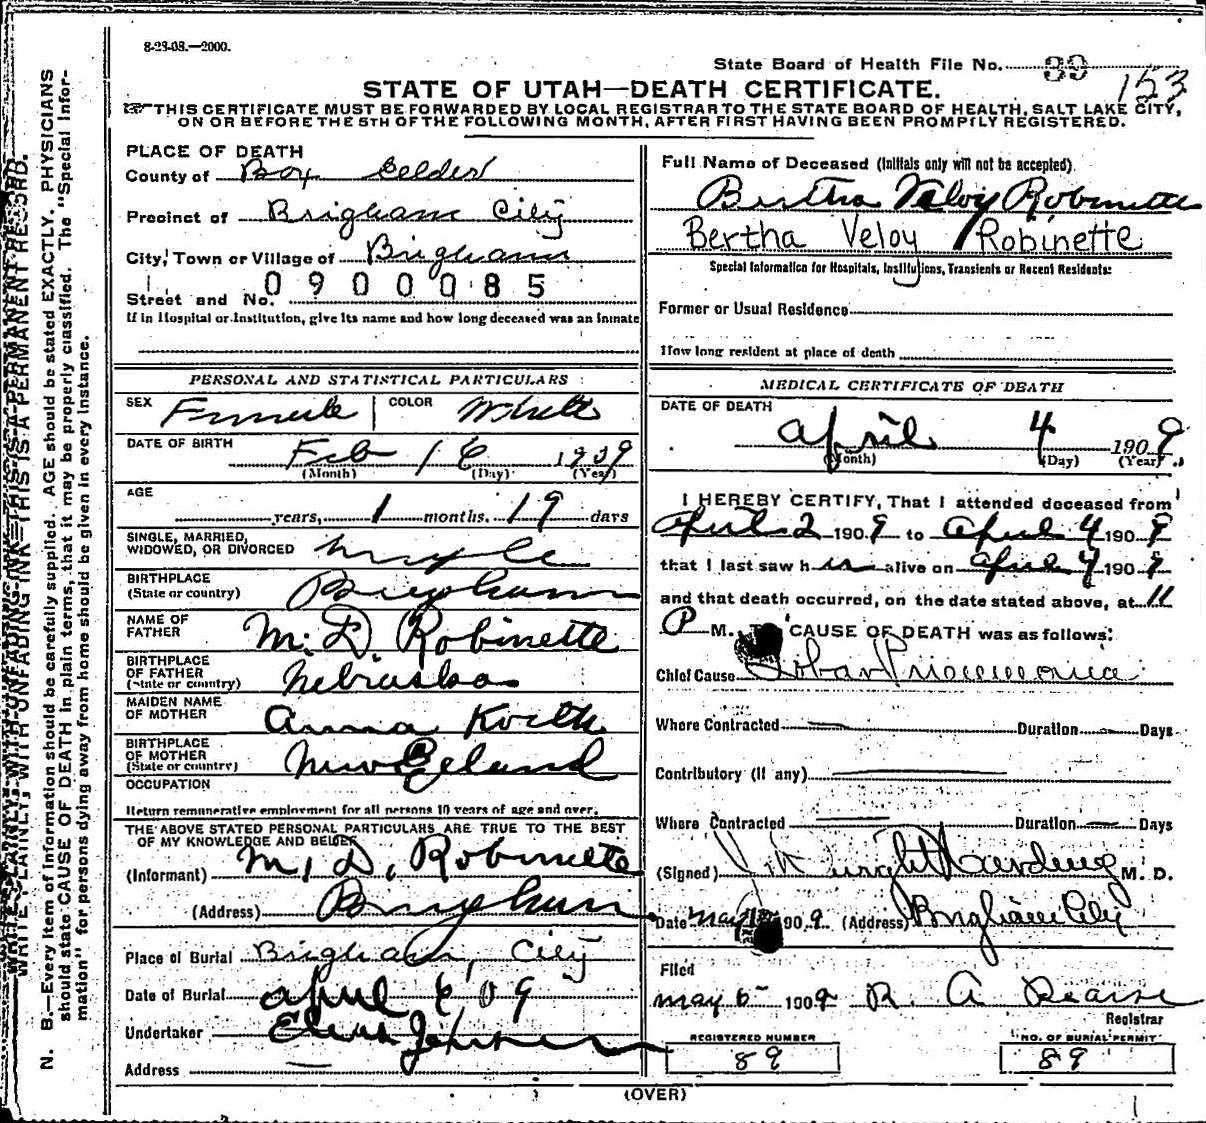 8-28-08.—2000.
State Board of Health File No. 89
153
STATE OF UTAH—DEATH CERTIFICATE.
THIS CERTIFICATE MUST BE FORWARDED BY LOCAL REGISTRAR TO THE STATE BOARD OF HEALTH, SALT LAKE CITY,
ON OR BEFORE THE 5TH OF THE FOLLOWING MONTH, AFTER FIRST HAVING BEEN PROMPTLY REGISTERED.
PLACE OF DEATH
County of Box Elder
Precinct of Brigham City
City, Town or Village of Brigham
0900085
Street and No.
If in Hospital or Institution, give its name and how long deceased was an inmate
Full Name of Deceased (Initials only will not be accepted)
Bertha Veloy Robinette
Bertha Veloy Robinette
Special Information for Hospitals, Institutions, Transients or Recent Residents:
Former or Usual Residence
How long resident at place of death
PERSONAL AND STATISTICAL PARTICULARS
SEX Female COLOR White
DATE OF BIRTH Feb 16 1909
(Month) (Day) (Year)
AGE
years, 1 months. 19 days
SINGLE, MARRIED,
WIDOWED, OR DIVORCED Single
BIRTHPLACE
(State or country) Brigham
NAME OF
FATHER M. D. Robinette
BIRTHPLACE
OF FATHER
(State or country) Nebraska
MAIDEN NAME
OF MOTHER Anna
BIRTHPLACE
OF MOTHER
(State or country) New Zeland
OCCUPATION
Return remunerative employment for all persons 10 years of age and over.
THE ABOVE STATED PERSONAL PARTICULARS ARE TRUE TO THE BEST
OF MY KNOWLEDGE AND BELIEF
(Informant) M. D. Robinette
(Address) Brigham
Place of Burial Brigham, City
Date of Burial April 6 09
Undertaker
Address
MEDICAL CERTIFICATE OF DEATH
DATE OF DEATH
April 4 1909
(Month) (Day) (Year)
I HEREBY CERTIFY, That I attended deceased from
April 2 1909 to April 4 1909
that I last saw h er alive on April 4 1909
and that death occurred, on the date stated above, at 11
P M. CAUSE OF DEATH was as follows:
Chief Cause Lobar Pneumonia
Where Contracted Duration Days
Contributory (If any)
Where Contracted Duration Days
(Signed) Harding M. D.
Date May 1909 (Address) Brigham City
Filed
May 5 1909 R. A. Pearse
Registrar
REGISTERED NUMBER
89
NO. OF BURIAL PERMIT
89
(OVER)
WRITE PLAINLY, WITH UNFADING INK—THIS IS A PERMANENT RECORD.
N. B.—Every item of information should be carefully supplied. AGE should be stated EXACTLY. PHYSICIANS
should state CAUSE OF DEATH in plain terms, that it may be properly classified. The "Special Infor-
mation" for persons dying away from home should be given in every instance.